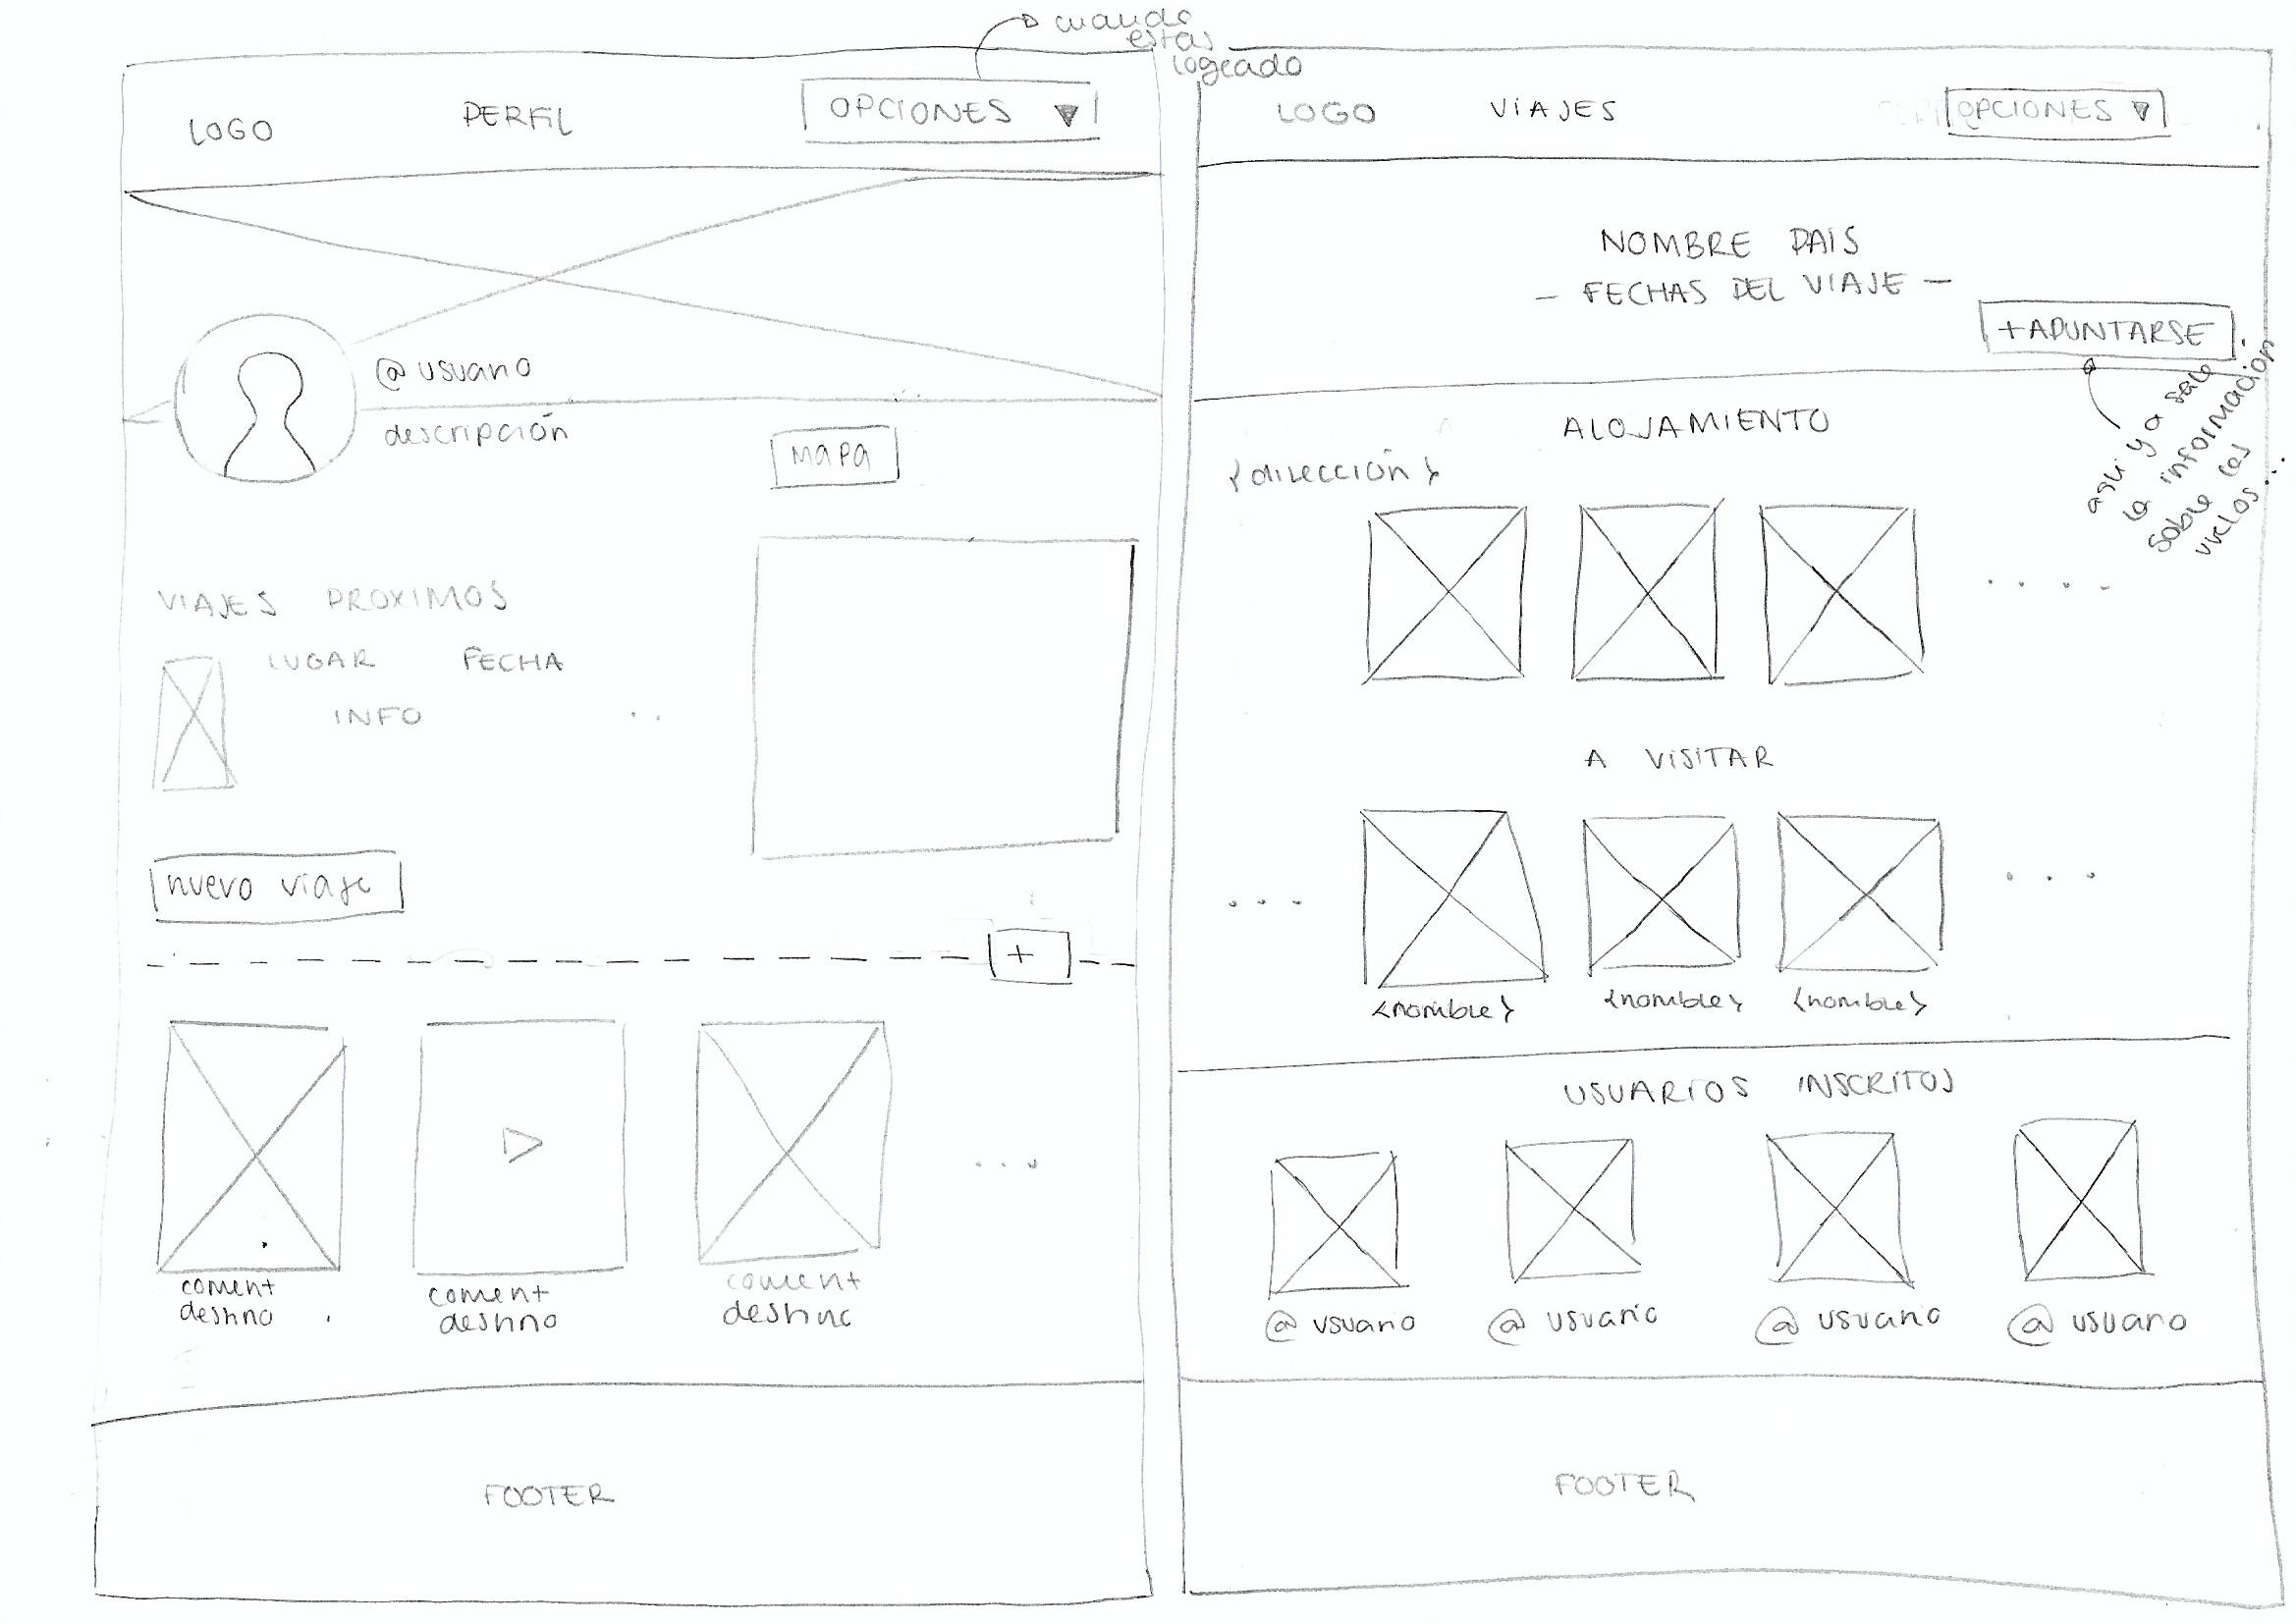 cuando
estas
logeado
LOGO PERFIL OPCIONES
@usuario
descripción
MAPA
VIAJES PROXIMOS
LUGAR FECHA
INFO
nuevo viaje
+
coment
destino
coment
destino
coment
destino
FOOTER
LOGO VIAJES OPCIONES
NOMBRE PAIS
- FECHAS DEL VIAJE -
+APUNTARSE
aqui ya sale
la información
sobre los
vuelos...
ALOJAMIENTO
{dirección}
A VISITAR
{nombre} {nombre} {nombre}
USUARIOS INSCRITOS
@usuario @usuario @usuario @usuario
FOOTER